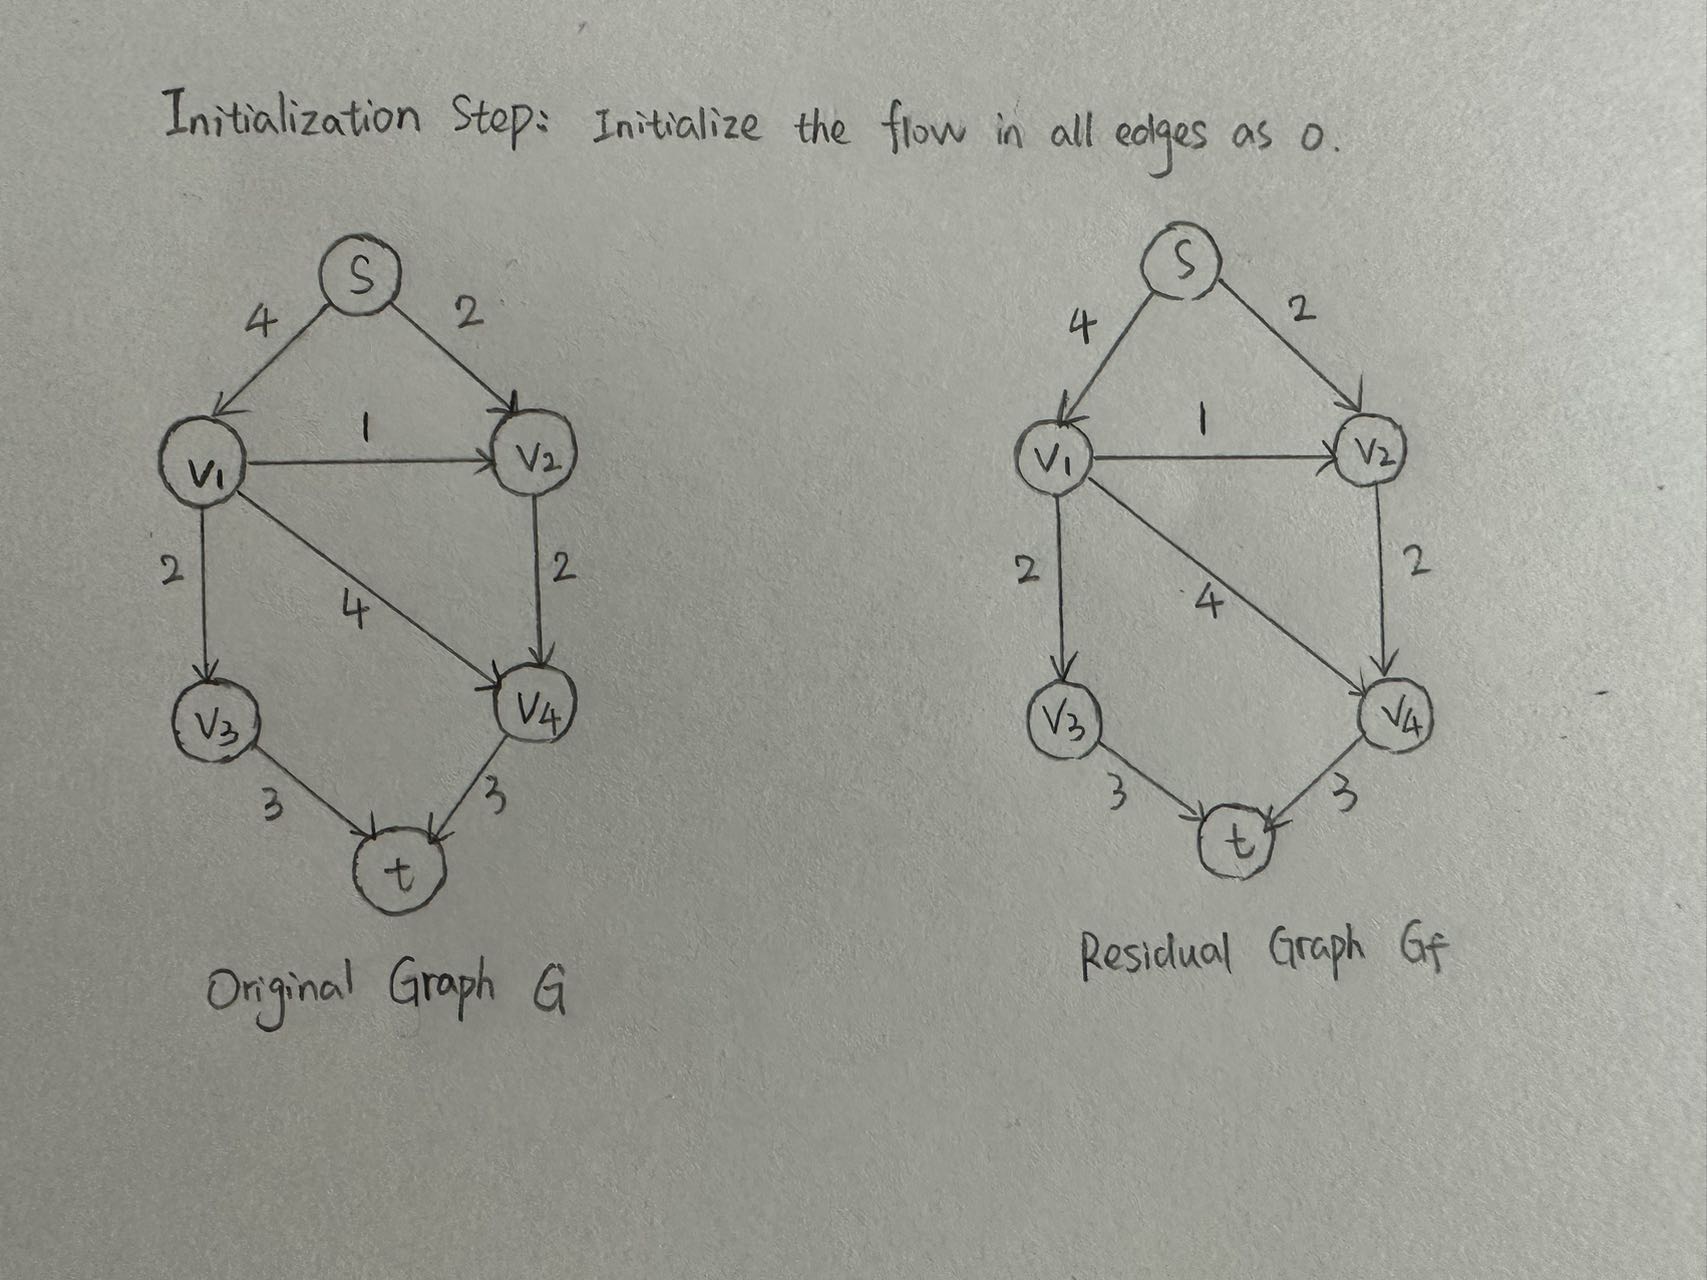 Initialization Step: Initialize the flow in all edges as 0.
S
4 2
1
V1 V2
2 4 2
V3 V4
3 3
t
Original Graph G
S
4 2
1
V1 V2
2 4 2
V3 V4
3 3
t
Residual Graph Gf